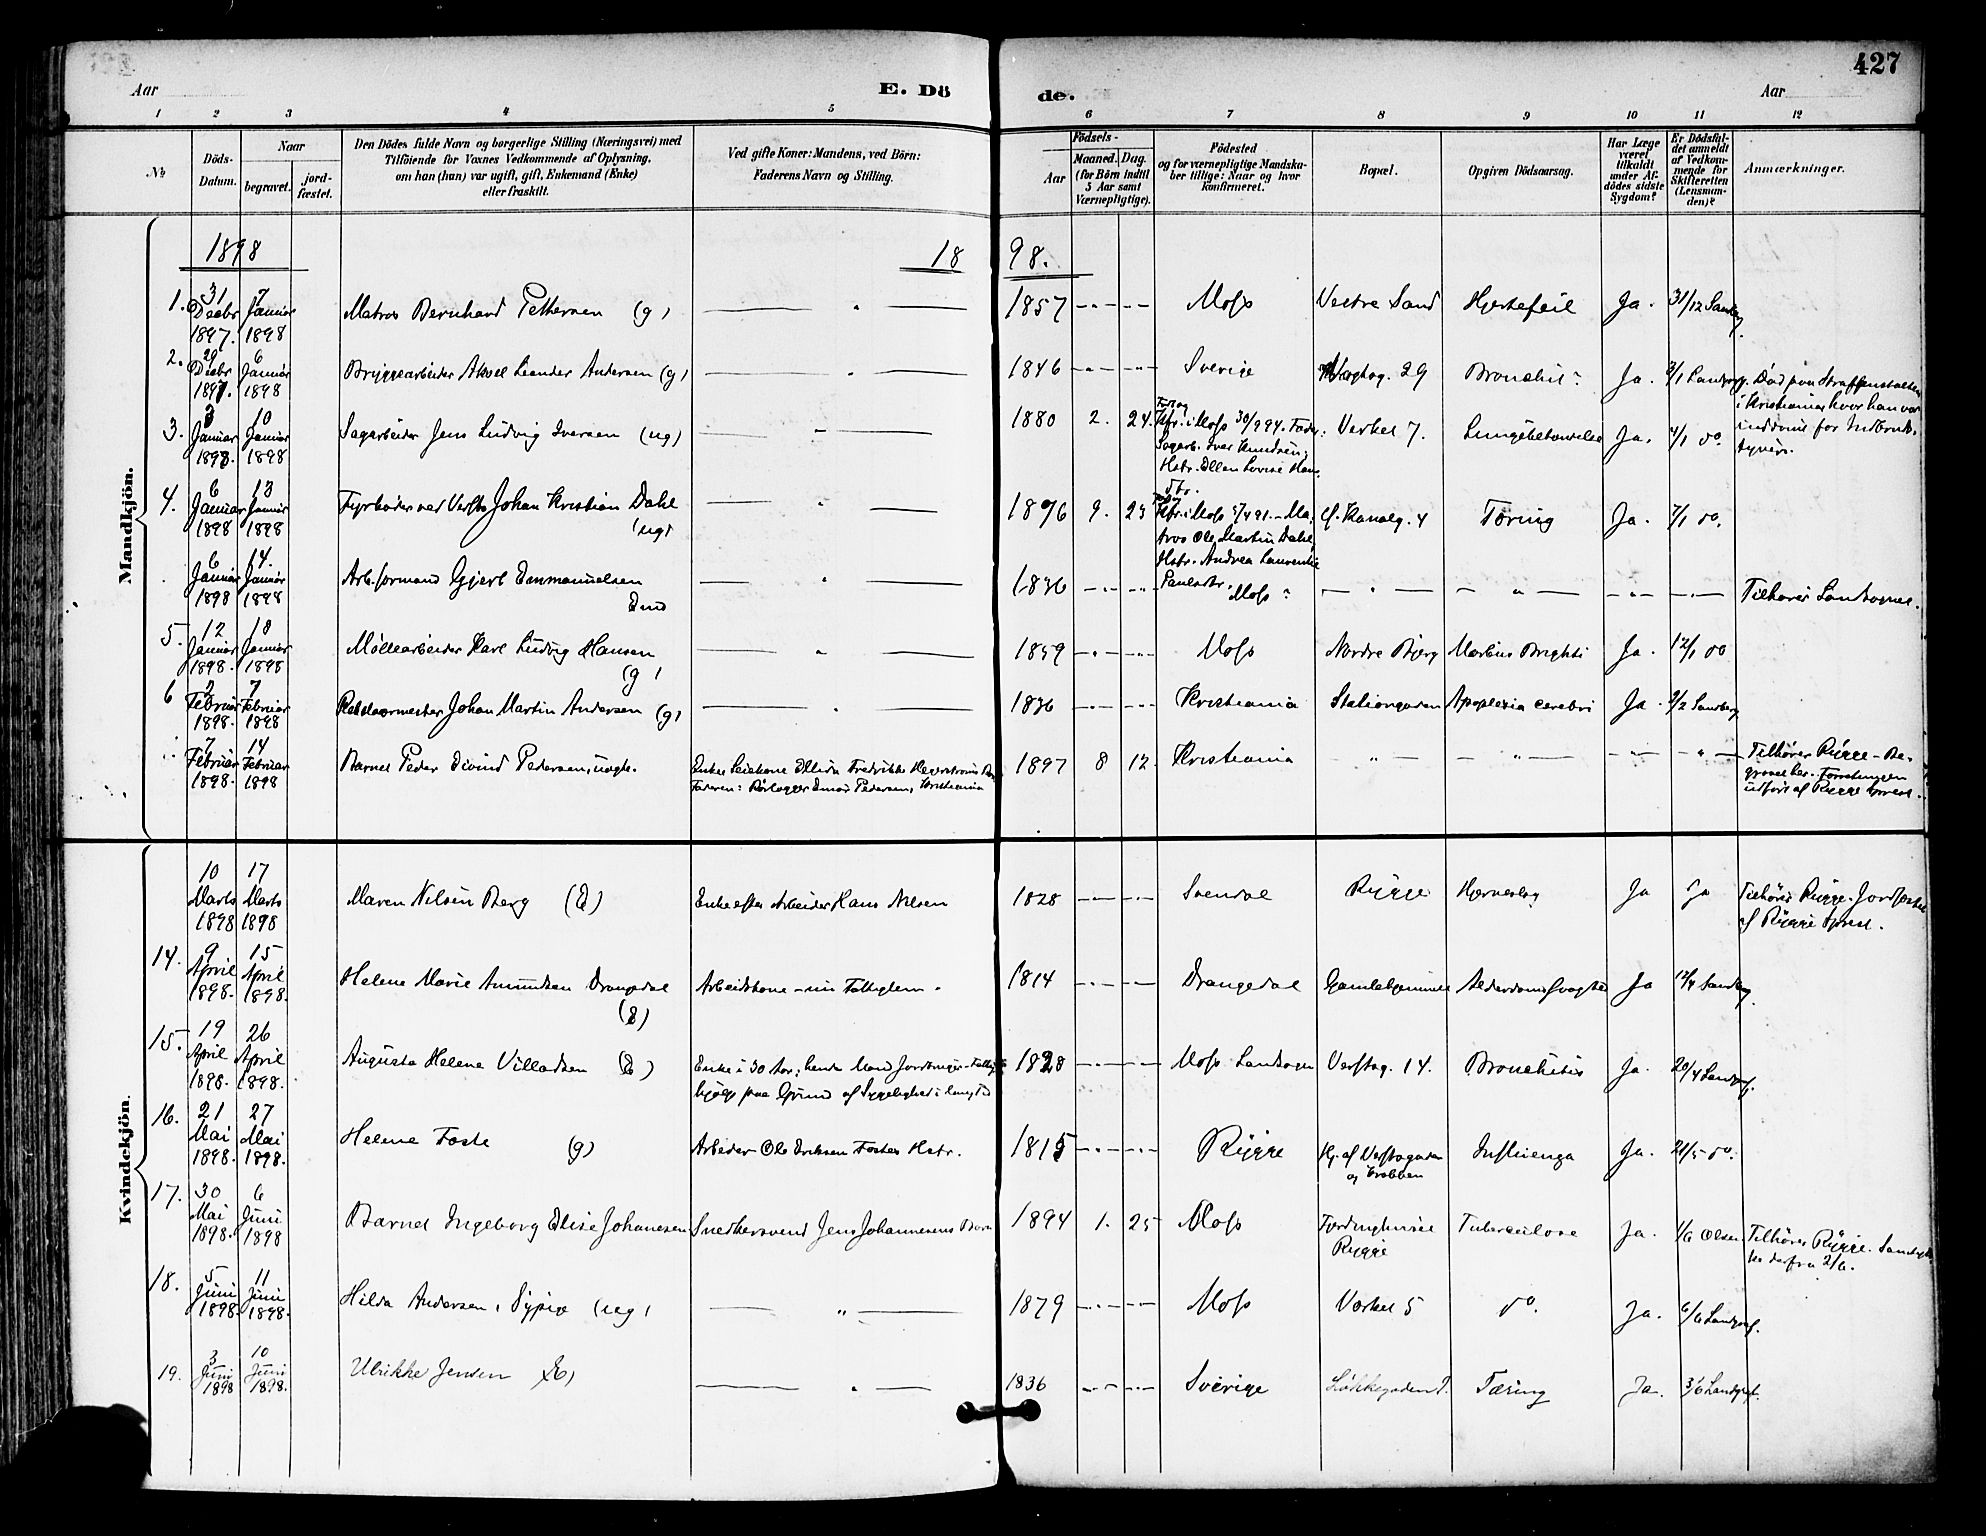 427
Aar
E. Dö
de.
Aar
1 2 3 4 5 6 7 8 9 10 11 12
No
Döds-
Datum.
Naar
begravet.
jord-
fæstet.
Den Dödes fulde Navn og borgerlige Stilling (Næringsvei) med
Tilföiende for Voxnes Vedkommende af Oplysning,
om han (hun) var ugift, gift, Enkemand (Enke)
eller fraskilt.
Ved gifte Koner: Mandens, ved Börn:
Faderens Navn og Stilling.
Födsels-
Aar
Maaned. Dag.
(for Börn indtil
5 Aar samt
Værnepligtige).
Födested
og for værnepligtige Mandska-
ber tillige: Naar og hvor
konfirmeret.
Bopæl.
Opgiven Dödsaarsag.
Har Læge
været
tilkaldt
under Af-
dödes sidste
Sygdom?
Er Dödsfal-
det anmeldt
af Vedkom-
mende for
Skifteretten
(Lensman-
den)?
Anmærkninger.
Mandkjön.
1898
18 98.
1. 31 Decbr 1897. 7 Januar 1898 Matros Bernhard Pettersen (g) 1857 Moss Vestre Sand Hjertefeil Ja. 31/12 Sandberg
2. 29 Decbr 1897. 6 Januar 1898 Bryggearbeider Axel Leander Andersen (g) 1846 Sverige 29 Bronchit. Ja. Död paa Straffanstalten
i Kristiania hvor han var
inddömt for Indbruds-
tyveri.
3. 3 Januar 1898. 10 Januar 1898 Sagarbeider Jens Ludvig Iversen (ug) 1880 2. 24. Kfr. i Moss 30/9 94. Fader:
Sagarb. Iver Knudsen,
Hstr. Ellen Lovise Hans-
dtr.
Verket 7. Lungebetændelse Ja. 4/1 do.
4. 6 Januar 1898 13 Januar 1898 Fyrböder ved Verfts Johan Kristian Dahl
(ug)
1876 9. 23 Kfr. i Moss 91. - Ma-
tros Ole Martin Dahl,
Hstr. Andrea Laurentie
Paulsdtr.
Kanalg. 4 Tæring Ja. 7/1 do.
6 Januar 1898 14. Januar 1898 Arb.formand Gjert Emmanuelsen
Emd
1836 Moss? Tilhører Landsognet.
5. 12 Januar 1898. 18 Januar 1898 Möllearbeider Karl Ludvig Hansen
(g)
1859 Moss Nordre Bjerg Morbus Brighti Ja. 12/1 do
6 2 Februar 1898. 7 Februar 1898 Johan Martin Andersen (g) 1836 Kristiania Stationgaden Apoplexia cerebri Ja 2/2 Sandberg
7 Februar 1898. 14 Februar 1898 Barnet Peder Eivind Pedersen, uægte. Enke
Faderen: Rørlægger Einar Pedersen, Kristiania
1897 8 12. Kristiania Tilhører Rygge - Be-
gravet her. Forretningen
udført af Rygge Sprest.
Kvindekjön.
10 Marts 1898 17 Marts 1898 Maren Nilsen Berg (E) Enke efter Arbeider Hans Nilsen 1828 Svendal Rygge Hjerneslag Ja Ja Tilhører Rygge. Jordfæstet
af Rygge Sprest.
14. 9 April 1898. 15 April 1898. Helene Marie Amundsen Drangedal
(E)
Arbeidskone - nu Fattiglem. 1814 Drangedal Gamlehjemmet Alderdomssvaghed Ja 12/4 Sandberg
15. 19 April 1898. 26 April 1898. Augusta Helene Villadsen (E) Enke i 30 Aar; hendes Mand Jordbruger - Fattig-
hjælp paa Grund af Sygelighed i lang Tid
1828 Moss Landsogn Verftsg. 14. Bronchitis Ja. 20/4 Landgraf.
16. 21 Mai 1898. 27 Mai 1898. Helene Foste (g) Arbeider Ole Eriksen Fostes Hstr. 1815 Rygge Hj. af Verftsgaden
og Krabben
Influenza Ja. 21/5 do.
17. 30 Mai 1898. 6 Juni 1898 Barnet Ingeborg Elise Johannesen Snedkersvend Jens Johannesens Barn 1894 1. 25 Moss
Rygge
Tuberculose Ja. 1/6 Olsen Tilhører Rygge. Samtyk-
ke derfra 2/6.
18. 5 Juni 1898 11 Juni 1898. Hilda Andersen, Sypige (ug) 1879 Moss Værket 5 do. Ja. 6/6 Landgraf.
19. 3 Juni 1898 10 Juni 1898. Ulrikke Jensen (E) 1836 Sverige Løkkegaden 7. Tæring Ja. 3/6 Landgraf.